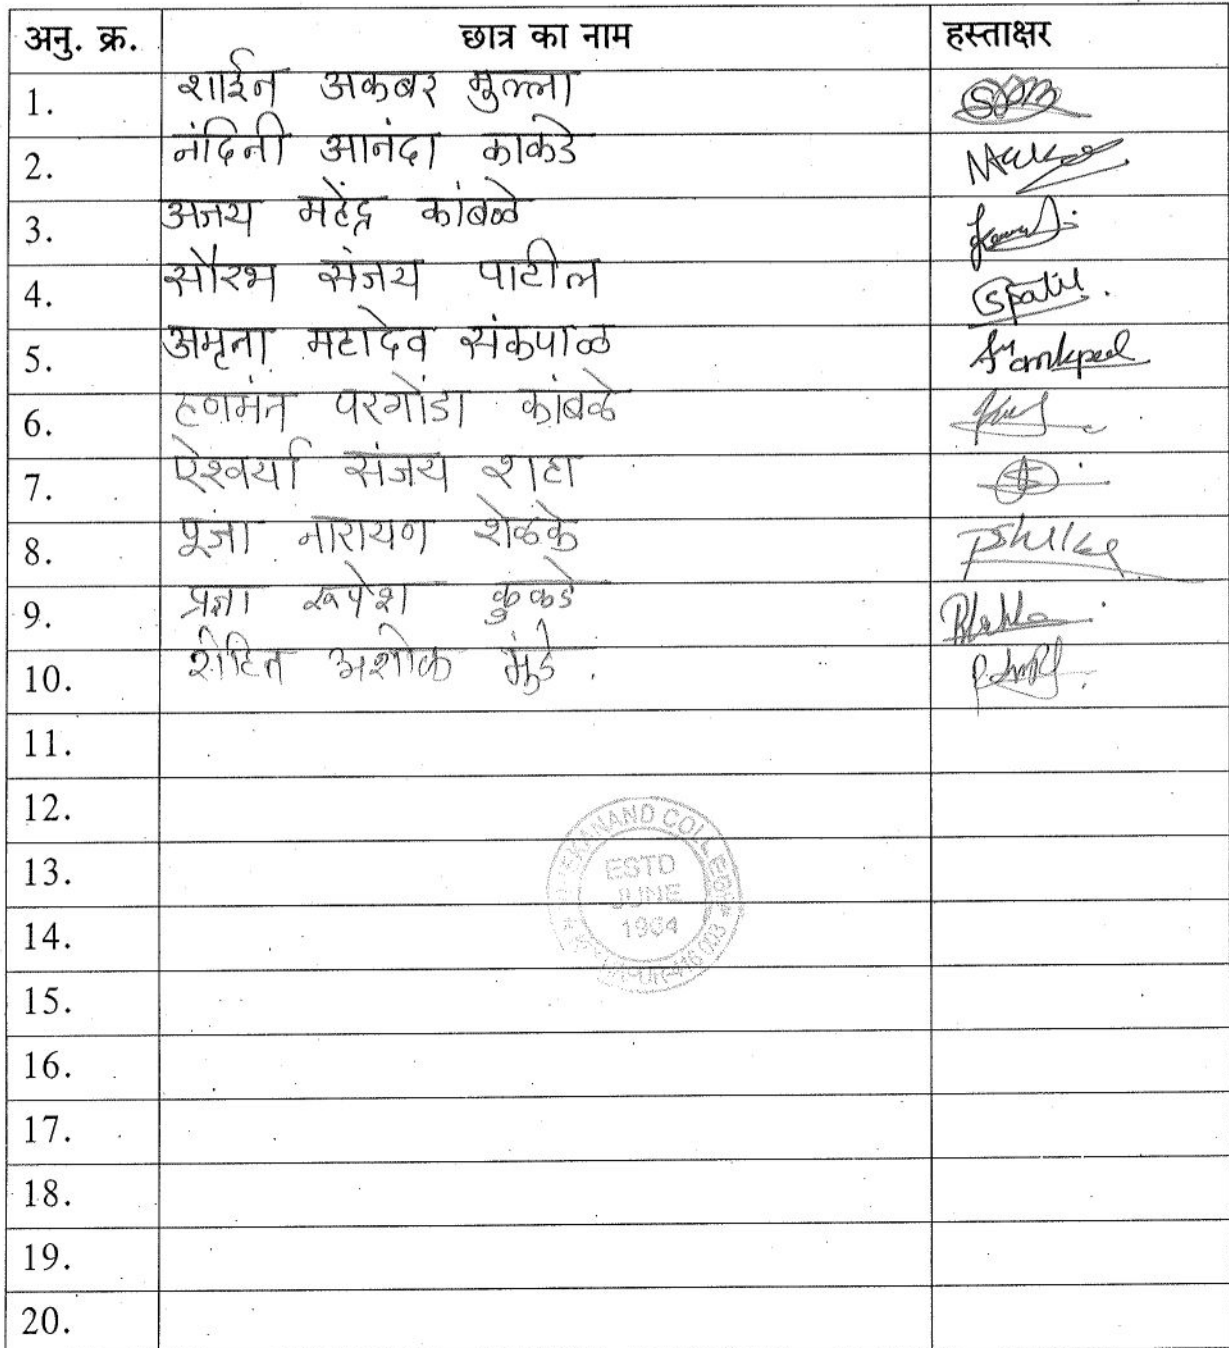 अनु. क्र. छात्र का नाम हस्ताक्षर
1. शाईन अकबर मुल्ला
2. नंदिनी आनंदा काकडे
3. अजय महेंद्र कांबळे
4. सौरभ संजय पाटील Spatil.
5. अमृता महादेव संकपाळ
6. हणमंत परगोंडा कांबळे
7. ऐश्वर्या संजय शहा
8. पूजा नारायण शेळके
9. प्रज्ञा रूपेश कुकडे
10. रोहित अशोक मुंडे.
11.
12.
13.
14.
15.
16.
17.
18.
19.
20.
ESTD
JUNE
1964